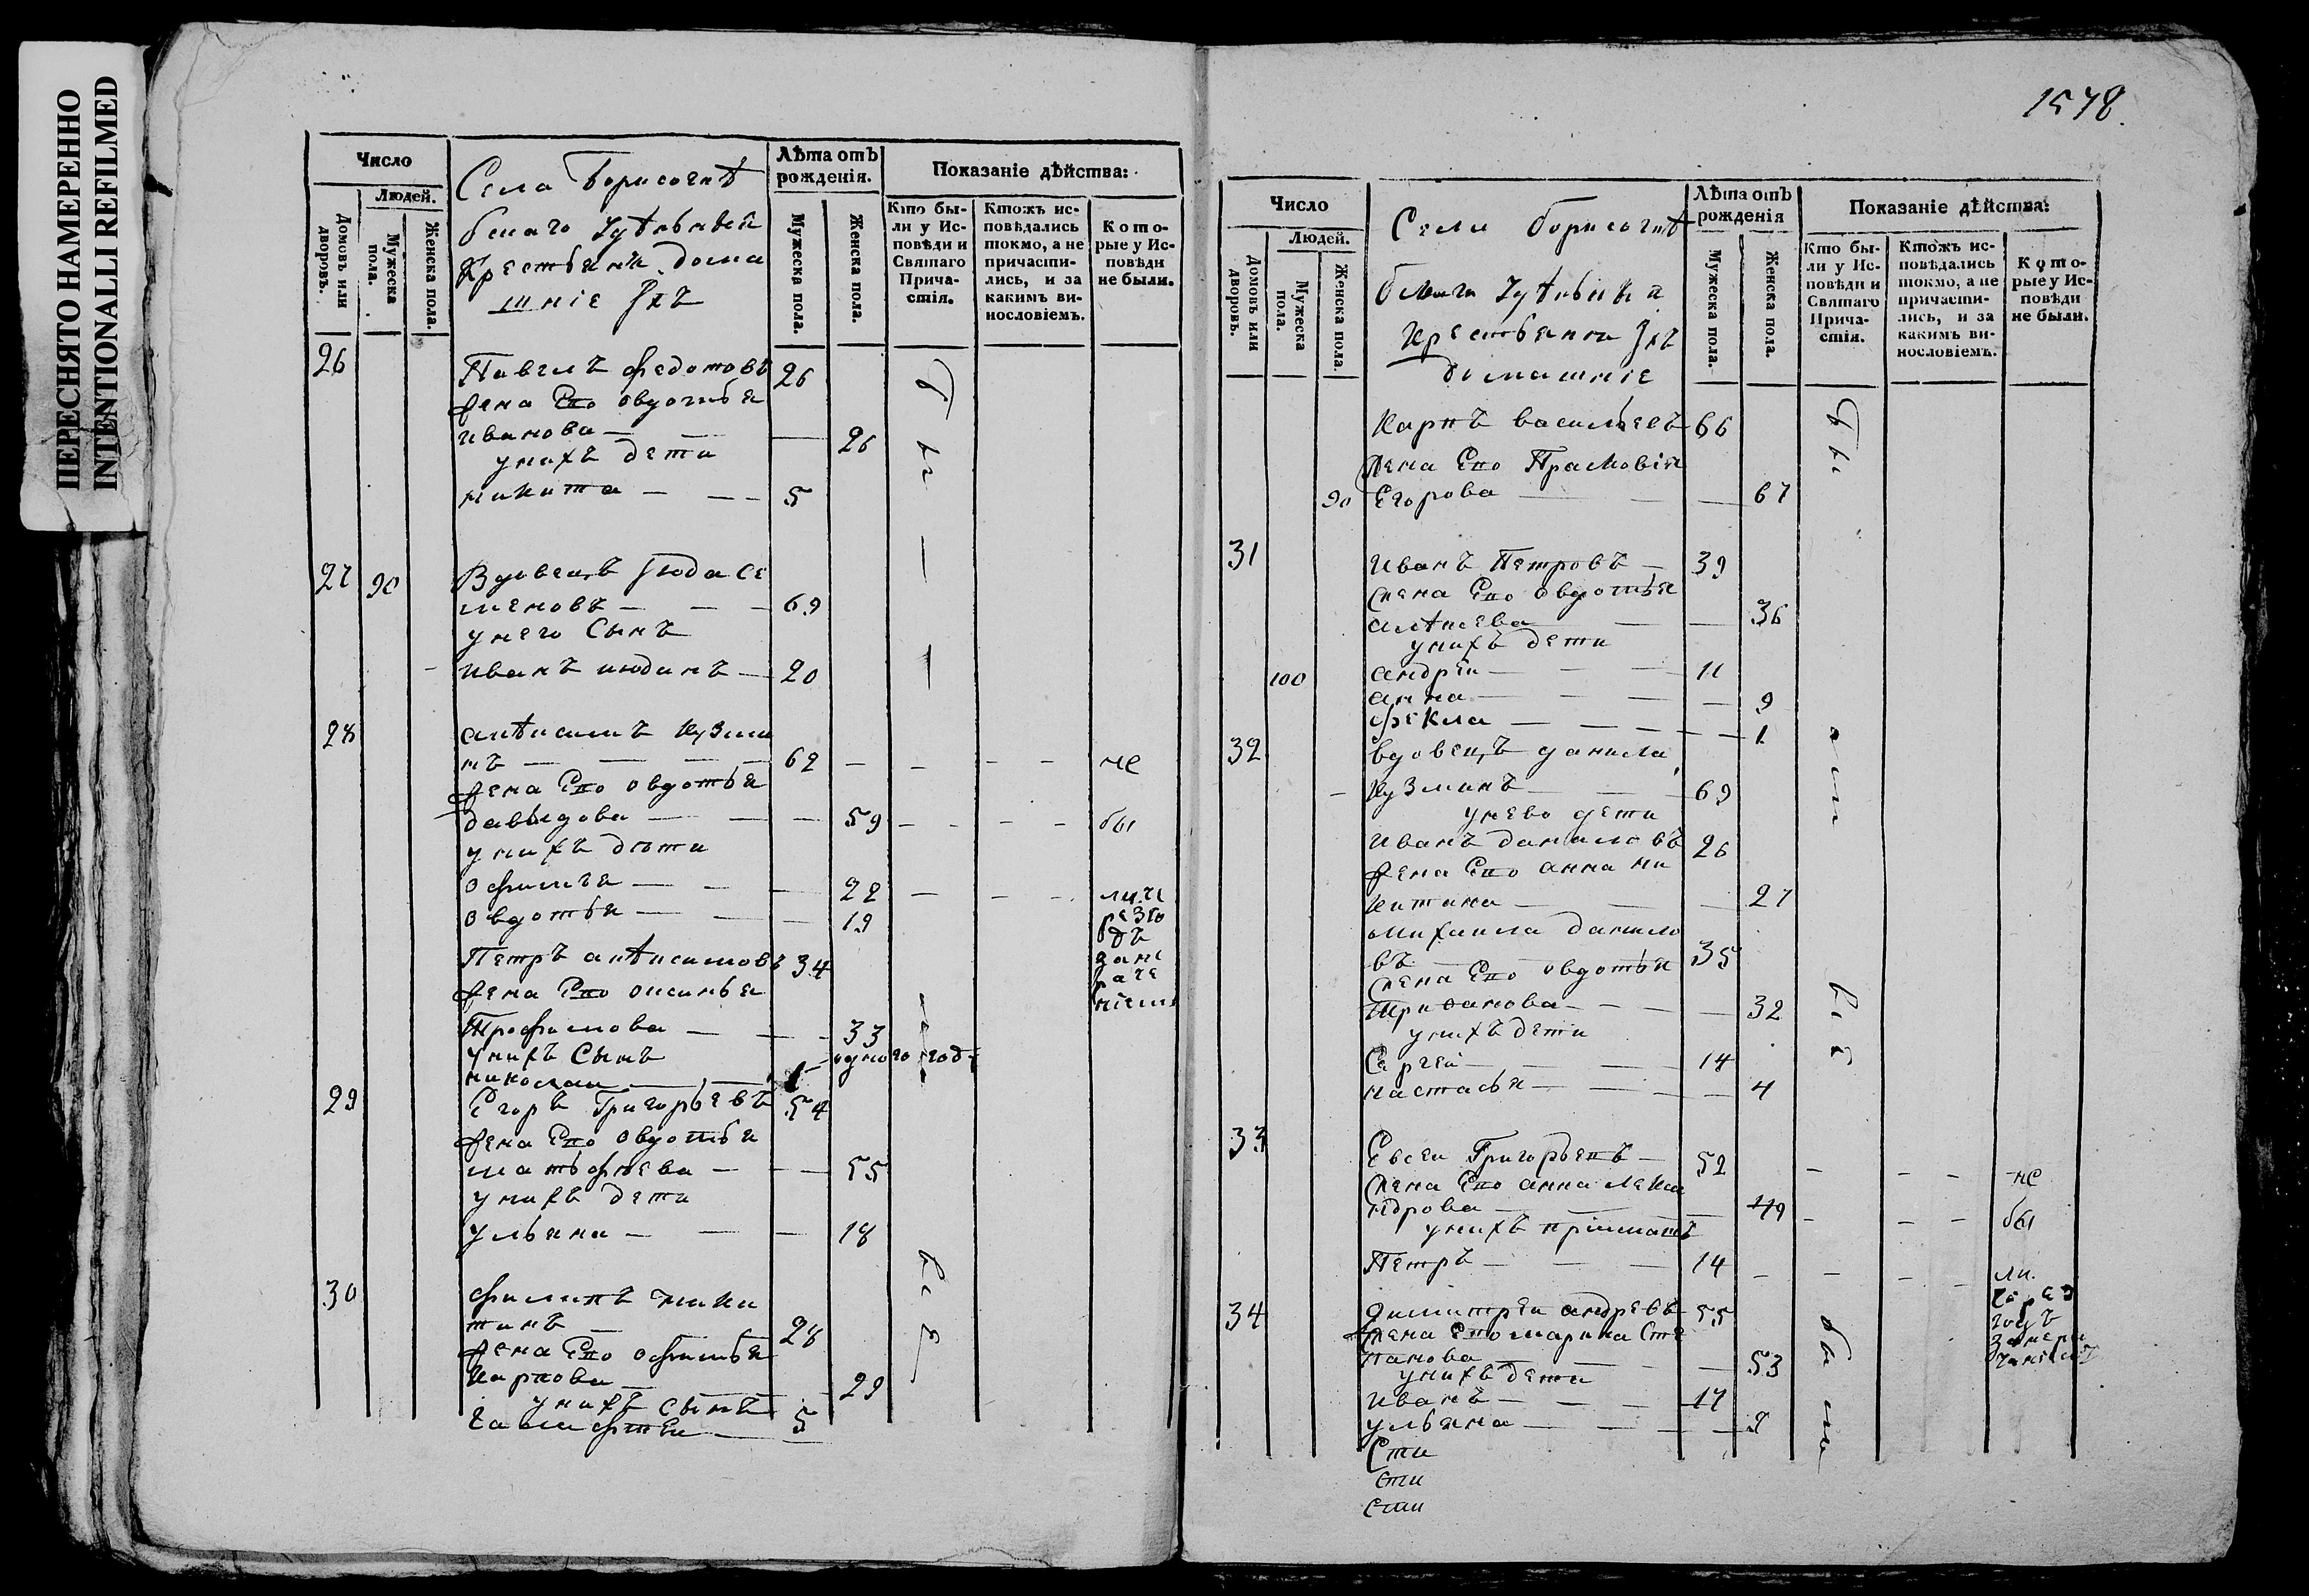 ПЕРЕСНЯТО НАМЕРЕННО
INTENTIONALLI REFILMED
Число
Людей.
Домовъ или дворовъ.
Мужеска пола.
Женска пола.
Села Борисоглѣ
бскаго
Крестьяни дома
шнiе
Лѣта отъ рожденiя.
Мужеска пола.
Женска пола.
Показанiе дѣйства:
Кто бы-
ли у Ис-
повѣди и
Святаго
Прича-
стiя.
Ктожъ ис-
повѣдались
токмо, а не
причасти-
лись, и за
какимъ ви-
нословiемъ.
Кото-
рые у Ис-
повѣди
не были.
26 Павелъ Федотовъ 26
жена Его овдотья
иванова — — — 26
унихъ дети
никита — — — 5
27 90 Вдовецъ Июда Се
меновъ — — — 69
унего Сынъ
иванъ июдинъ — 20
28 анѣисимъ кузми
нъ — — — 62 — — — — не
жена Его овдотья
давыдова — — — 59 — — — — бы
унихъ дѣти
офимья — — — 22 — — — ли че
овдотья — — — 19 резго
дъ
Петръ анѣисимовъ 34
жена Его оксинья
Трофимова — — — 33
унихъ Сынъ одного году
николаи — — 1
29 Егоръ Григорьевъ 54
жена Его овдотья
матьфеева — — — 55
унихъ дети
ульяна — — — 18
30 филипъ ники
тинъ — 28
жена Его офимья
карпова — 29
унихъ сынъ
5
1578.
Число
Людей.
Домовъ или дворовъ.
Мужеска пола.
Женска пола
Села борисоглѣ
бскаго
крестьянъ
домашнiе
Лѣта отъ рожденiя
Мужеска пола.
Женска пола.
Показанiе дѣйства:
Кто бы-
ли у Ис-
повѣди и
Святаго
Прича-
стiя.
Ктожъ ис-
повѣдались
токмо, а не
причасти-
лись, и за
какимъ ви-
нословiемъ.
Кото-
рые у Ис-
повѣди
не были.
Карпъ васильевъ 66
жена Его Прасковiя
90 Егорова — — — 67
31 Иванъ Петровъ — 39
жена Его овдотья
алѣксева — — — 36
унихъ дети
100 андреи — — — 11
анна — — — 9
фекла — — — 1
32 вдовецъ данила
кузминъ — — — 69
унево дети
иванъ даниловъ 26
жена Его анна ни
китина — — — 27
михаила данило
въ — — 35
жена Его овдотья
Трифанова — — — 32
унихъ дети
Сергеи — — — 14
настасья — — — 4
33 Евсеи Григорьевъ — 52 — — — не
жена Его анна лекса
ндрова — — — 49 — — — бы
унихъ прiимышъ
Петръ — — — 14 — — — — ли.
через
годъ
34 димитреи андревъ 55
жена Его марина Сте
панова — — — 53
унихъ дети
иванъ — — — 17
ульяна — — — 9
Сти
сти
сти